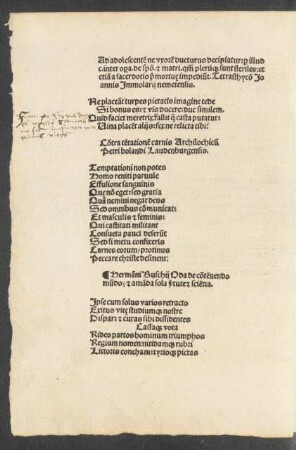 Ad adolescentē ne vxorē ducturus decipiatur: ꝑ illud
c. inter oga. de spō. ⁊ matri. qm̄ pleriqꝫ sunt steriles: et
etiā a sacerdotio p̄ mortuę impediūt. Tetrasthycō Jo
annis Jmmolarij nemetensis.
Ne placeāt turpes pietatis imagine tede
Si bonus es: ⁊ vis ducere: duc similem.
Quid faciet meretrix: fallit q̄ casta putatur:
Vina placēt alijs: fęx ne relicta tibi?
Cōtra tētationē carnis Archilochicū
Petri bolandi Laudenburgensis.
Temptationi non potes
Homo reniti paruulę
Effusione sanguinis
Quę nō eget: sed gratia
Quā nemini negat deus
Sed omnibus cōmunicat:
Et masculis ⁊ feminis:
Qui castitati militant
Consueta pauci deserūt
Sed si metu confixeris
Carnes eorum: protinus
Peccare christe desinent:
¶ Hermāni Buschij Oda de cōtēnendo
mūdo: ⁊ amāda sola v̓tute ⁊ sciētia.
Jpse cum solus varios retracto
Exitus vitę studiumqꝫ nostre
Dispari ⁊ curas sibi dissidentes
Cassaqꝫ vota
Rideo partos hominum triumphos
Regium nomen: nitidamqꝫ rubri
Littoris concham: ⁊ tyrioqꝫ pictas